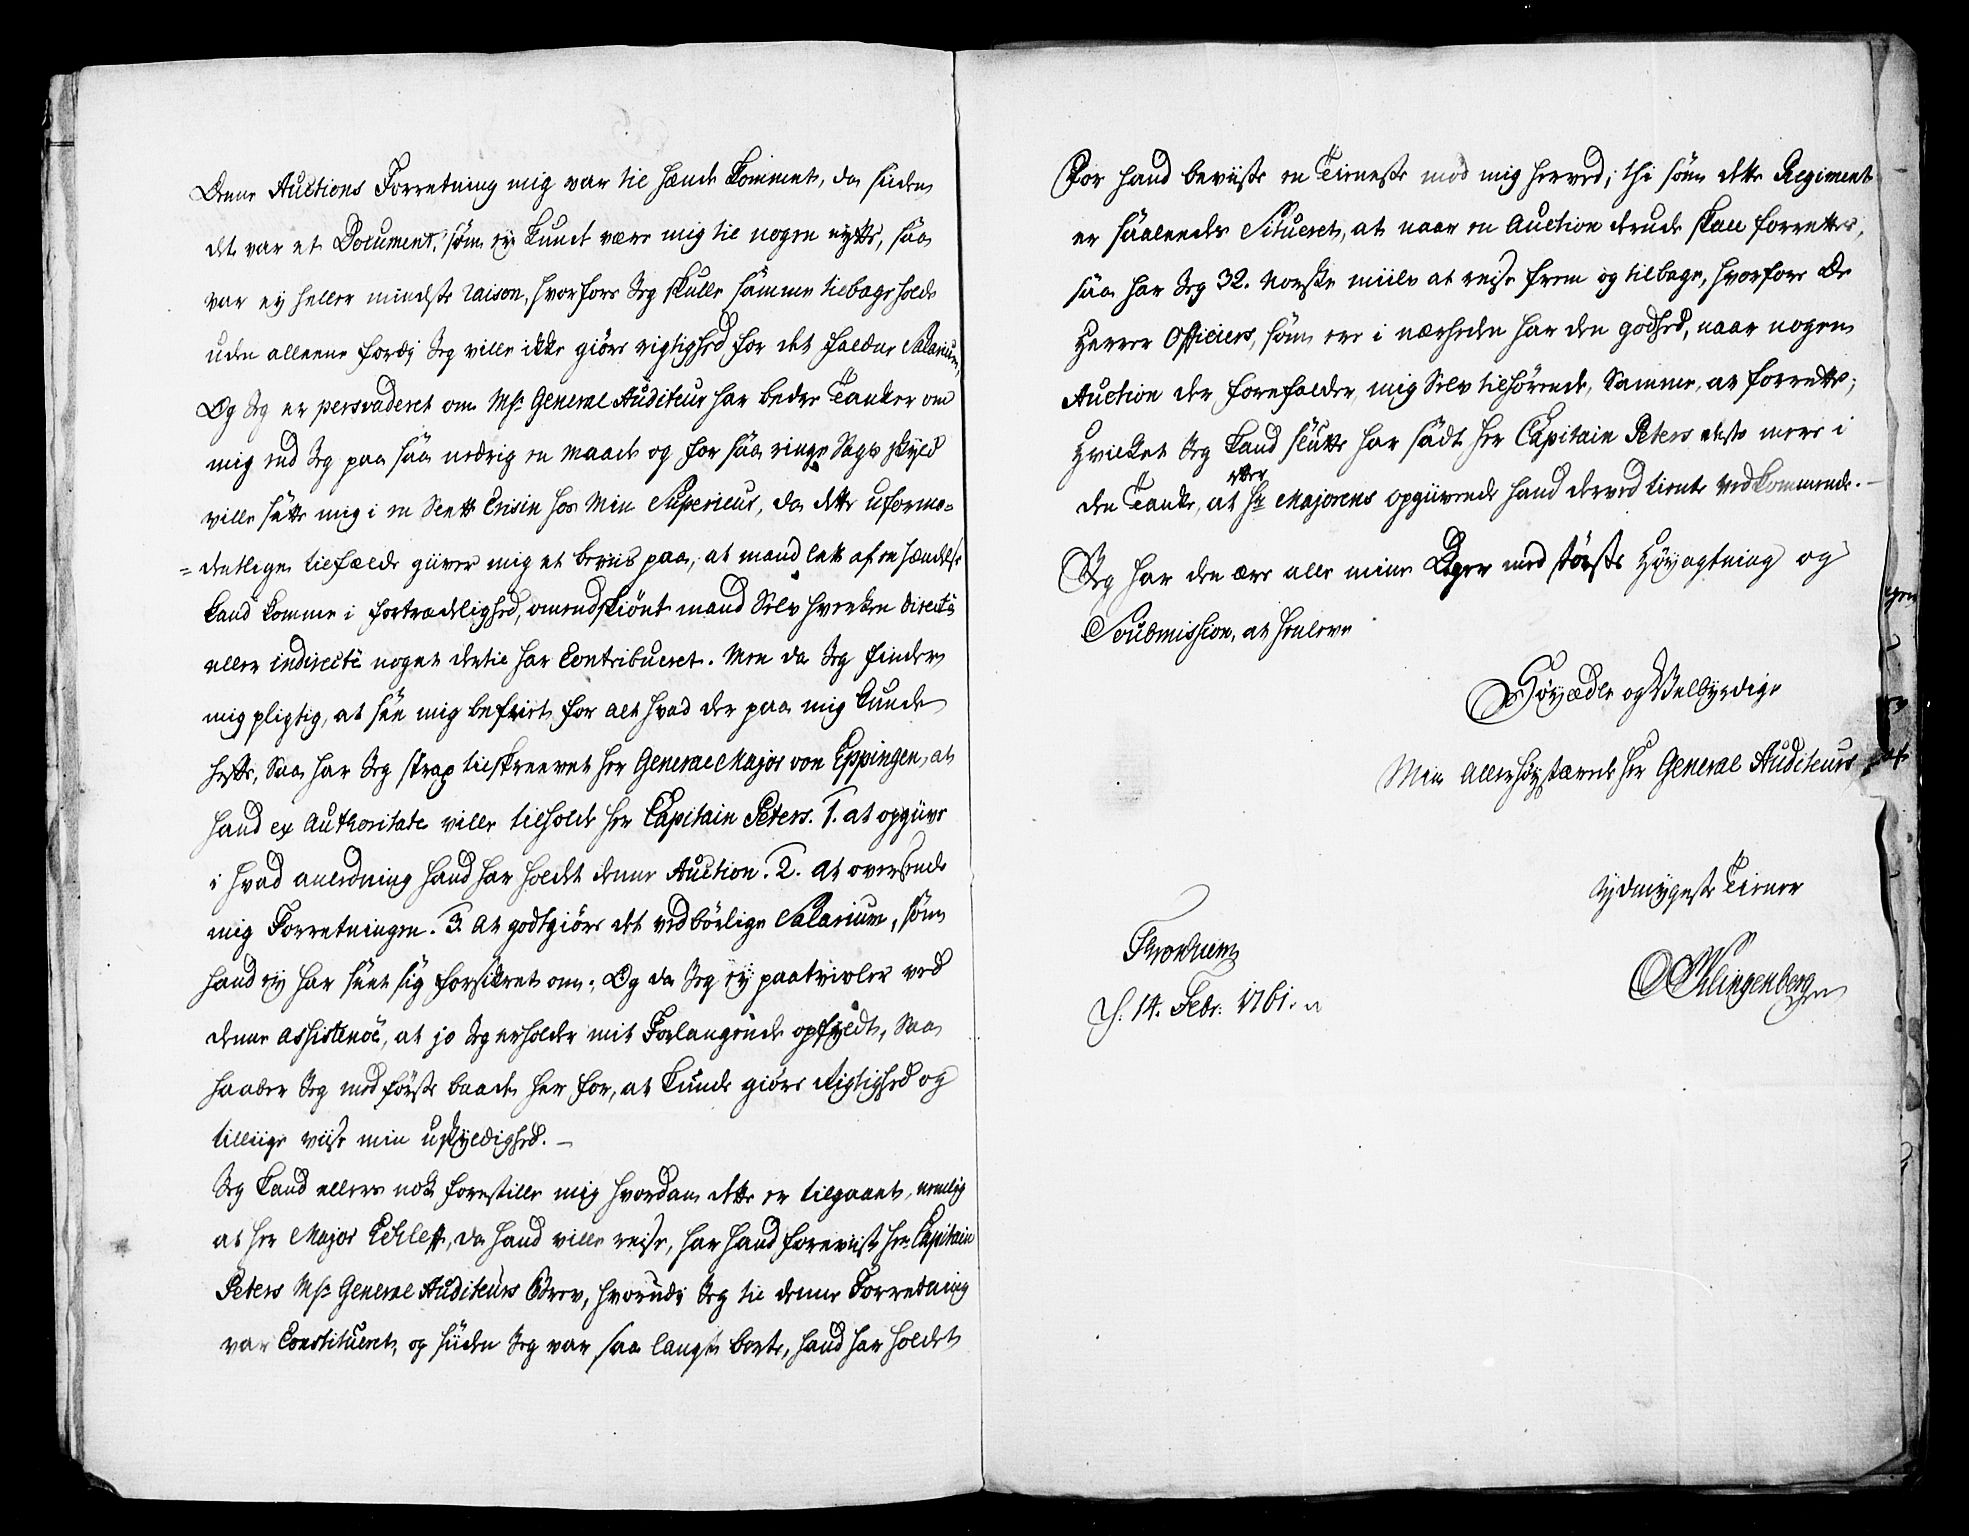 Denne Auctions Forretning mig var til hænde kommet, da siiden
det var et Document, som ej kunde være mig til nogen nytte, saa
var ej heller mindste raison, hvorfore Jeg skulle samme tilbageholde
uden alleene fordj Jeg ville ikke giöre rigtighed for det faldne Salarium,
Og Jeg er persvaderet om Mhr General Auditeur har bedre Tanker om
mig end Jeg paa saa nedrig en maade og for saa ringe Sags skyld
ville sætte mig i en slett Crisin hos Min Superieur, da dette uformo=
=dentlige tilfælde giiver mig et beviis paa, at mand lett af en hændelse
kand komme i fortrædelighed, omendskiönt mand Selv hverken directè
eller indirectè noget dertil har Contribueret. Men da Jeg finder
mig pligtig, at see mig befriet for alt hvad der paa mig kunde
hefte, Saa har Jeg strax tilskreevet Hr General Major von Eppingen, at
hand ex Authoritate ville tilholde Hr Capitain Peters. 1. at opgiive
i hvad anledning hand har holdet denne Auction. 2. At oversende
mig Forretningen. 3. At godtgiöre det vedbörlige Salarium, som
hand ej har seet sig forsikret om; Og da Jeg ej paatvivler ved
denne assistence, at jo Jeg erholder mit Forlangende opfyldt, Saa
haaber Jeg med förste baade her for, at kunde giöre Rigtighed og
tillige viise min uskyldighed. —
Jeg kand ellers nok forestille mig hvordan dette er tilgaaet, nemlig
at Hr Major Eckleff, da hand ville reise, har hand foreviist Hr Capitain
Peters Mhr General Auditeurs Brev, hvorudi Jeg til denne Forretning
var Constitueret, og siiden Jeg var saa langt borte, hand har holdet
For hand beviiste en Tieneste mod mig herved; thi som dette Regiment
er saaleedes Situeret, at naar en Auction derude skall forrettes,
saa har Jeg 32. Norske miile at reise frem og tilbage, hvorfore De
Herrer Officiers, som ere i nærheden har den godhed, naar nogen
Auction der forefalder, mig Selv tilhörende, Samme, at forrette;
Hvilket Jeg kand slutte har sadt Hr Capitain Peters deste mere i
den Tanke, at efter Hr Majorens opgiivende hand derved tiente Vedkommende. —
Jeg har den ære alle mine Dage med störste Höyagtning og
Soubmission, at henleve
Höyædle og Velbyrdige
Min Allerhöystærede Hr General Auditeurs
Ydmygeste Tiener
Klingenberg
Thronhiem
d. 14. Febr. 1761.